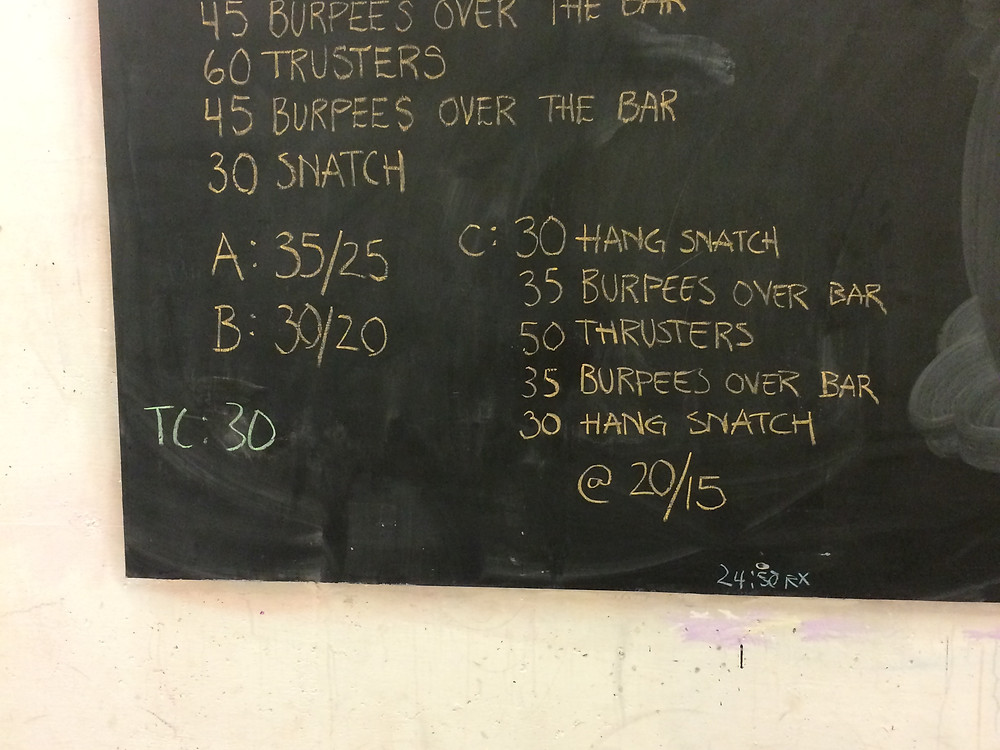 45 BURPEES OVER THE BAR
60 TRUSTERS
45 BURPEES OVER THE BAR
30 SNATCH
A: 35/25
B: 30/20
TC: 30
C: 30 HANG SNATCH
35 BURPEES OVER BAR
50 THRUSTERS
35 BURPEES OVER BAR
30 HANG SNATCH
@ 20/15
24:50 RX